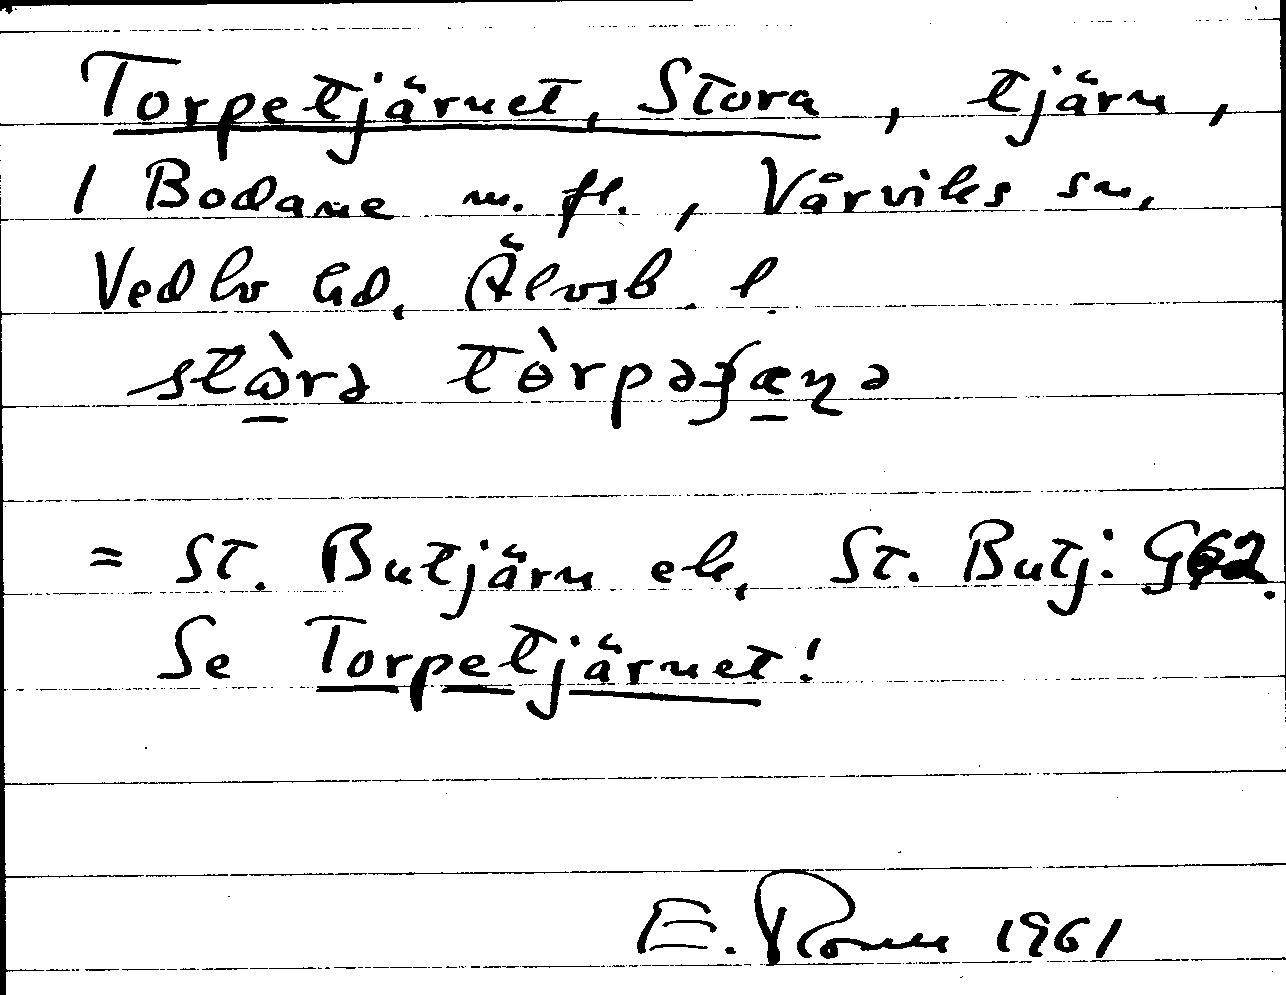 Torpetjärnet, Stora, tjärn,
1 Bodane m. fl., Vårviks sn,
Vedbo hd, Älvsb. l.
stὼrə tɵ̀rpəʃæɳə
= St. Butjärn ek, St. Butj: G62.
Se Torpetjärnet!
E. 1961